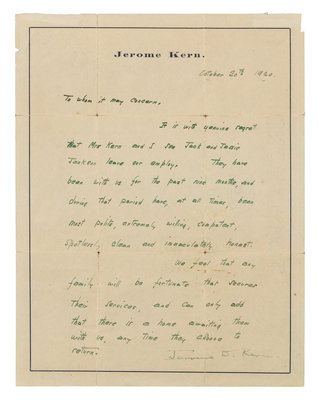 Jerome Kern.
October 20th 1920.
To whom it may concern,
It is with genuine regret
that Mrs Kern and I see Jack and
Jackson leave our employ. They have
been with us for the past nine months, and
during that period have, at all times, been
most polite, extremely willing, competent,
spotlessly clean and immaculately honest.
We feel that any
family will be fortunate that secures
their services, and can only add
that there is a home awaiting them
with us, any time they choose to
return.
Jerome D. Kern